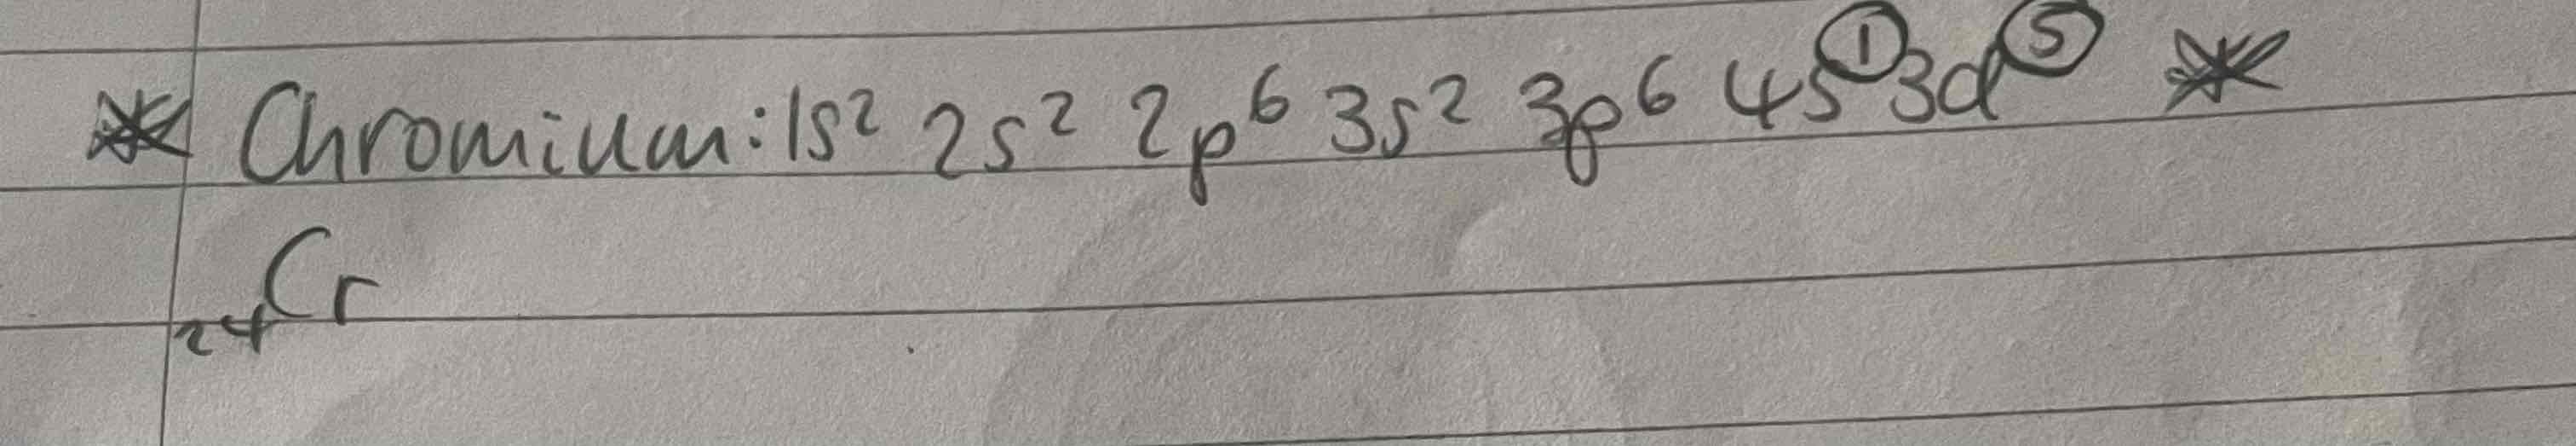 * Chromium: 1s² 2s² 2p⁶ 3s² 3p⁶ 4s① 3d⑤ *
₂₄Cr